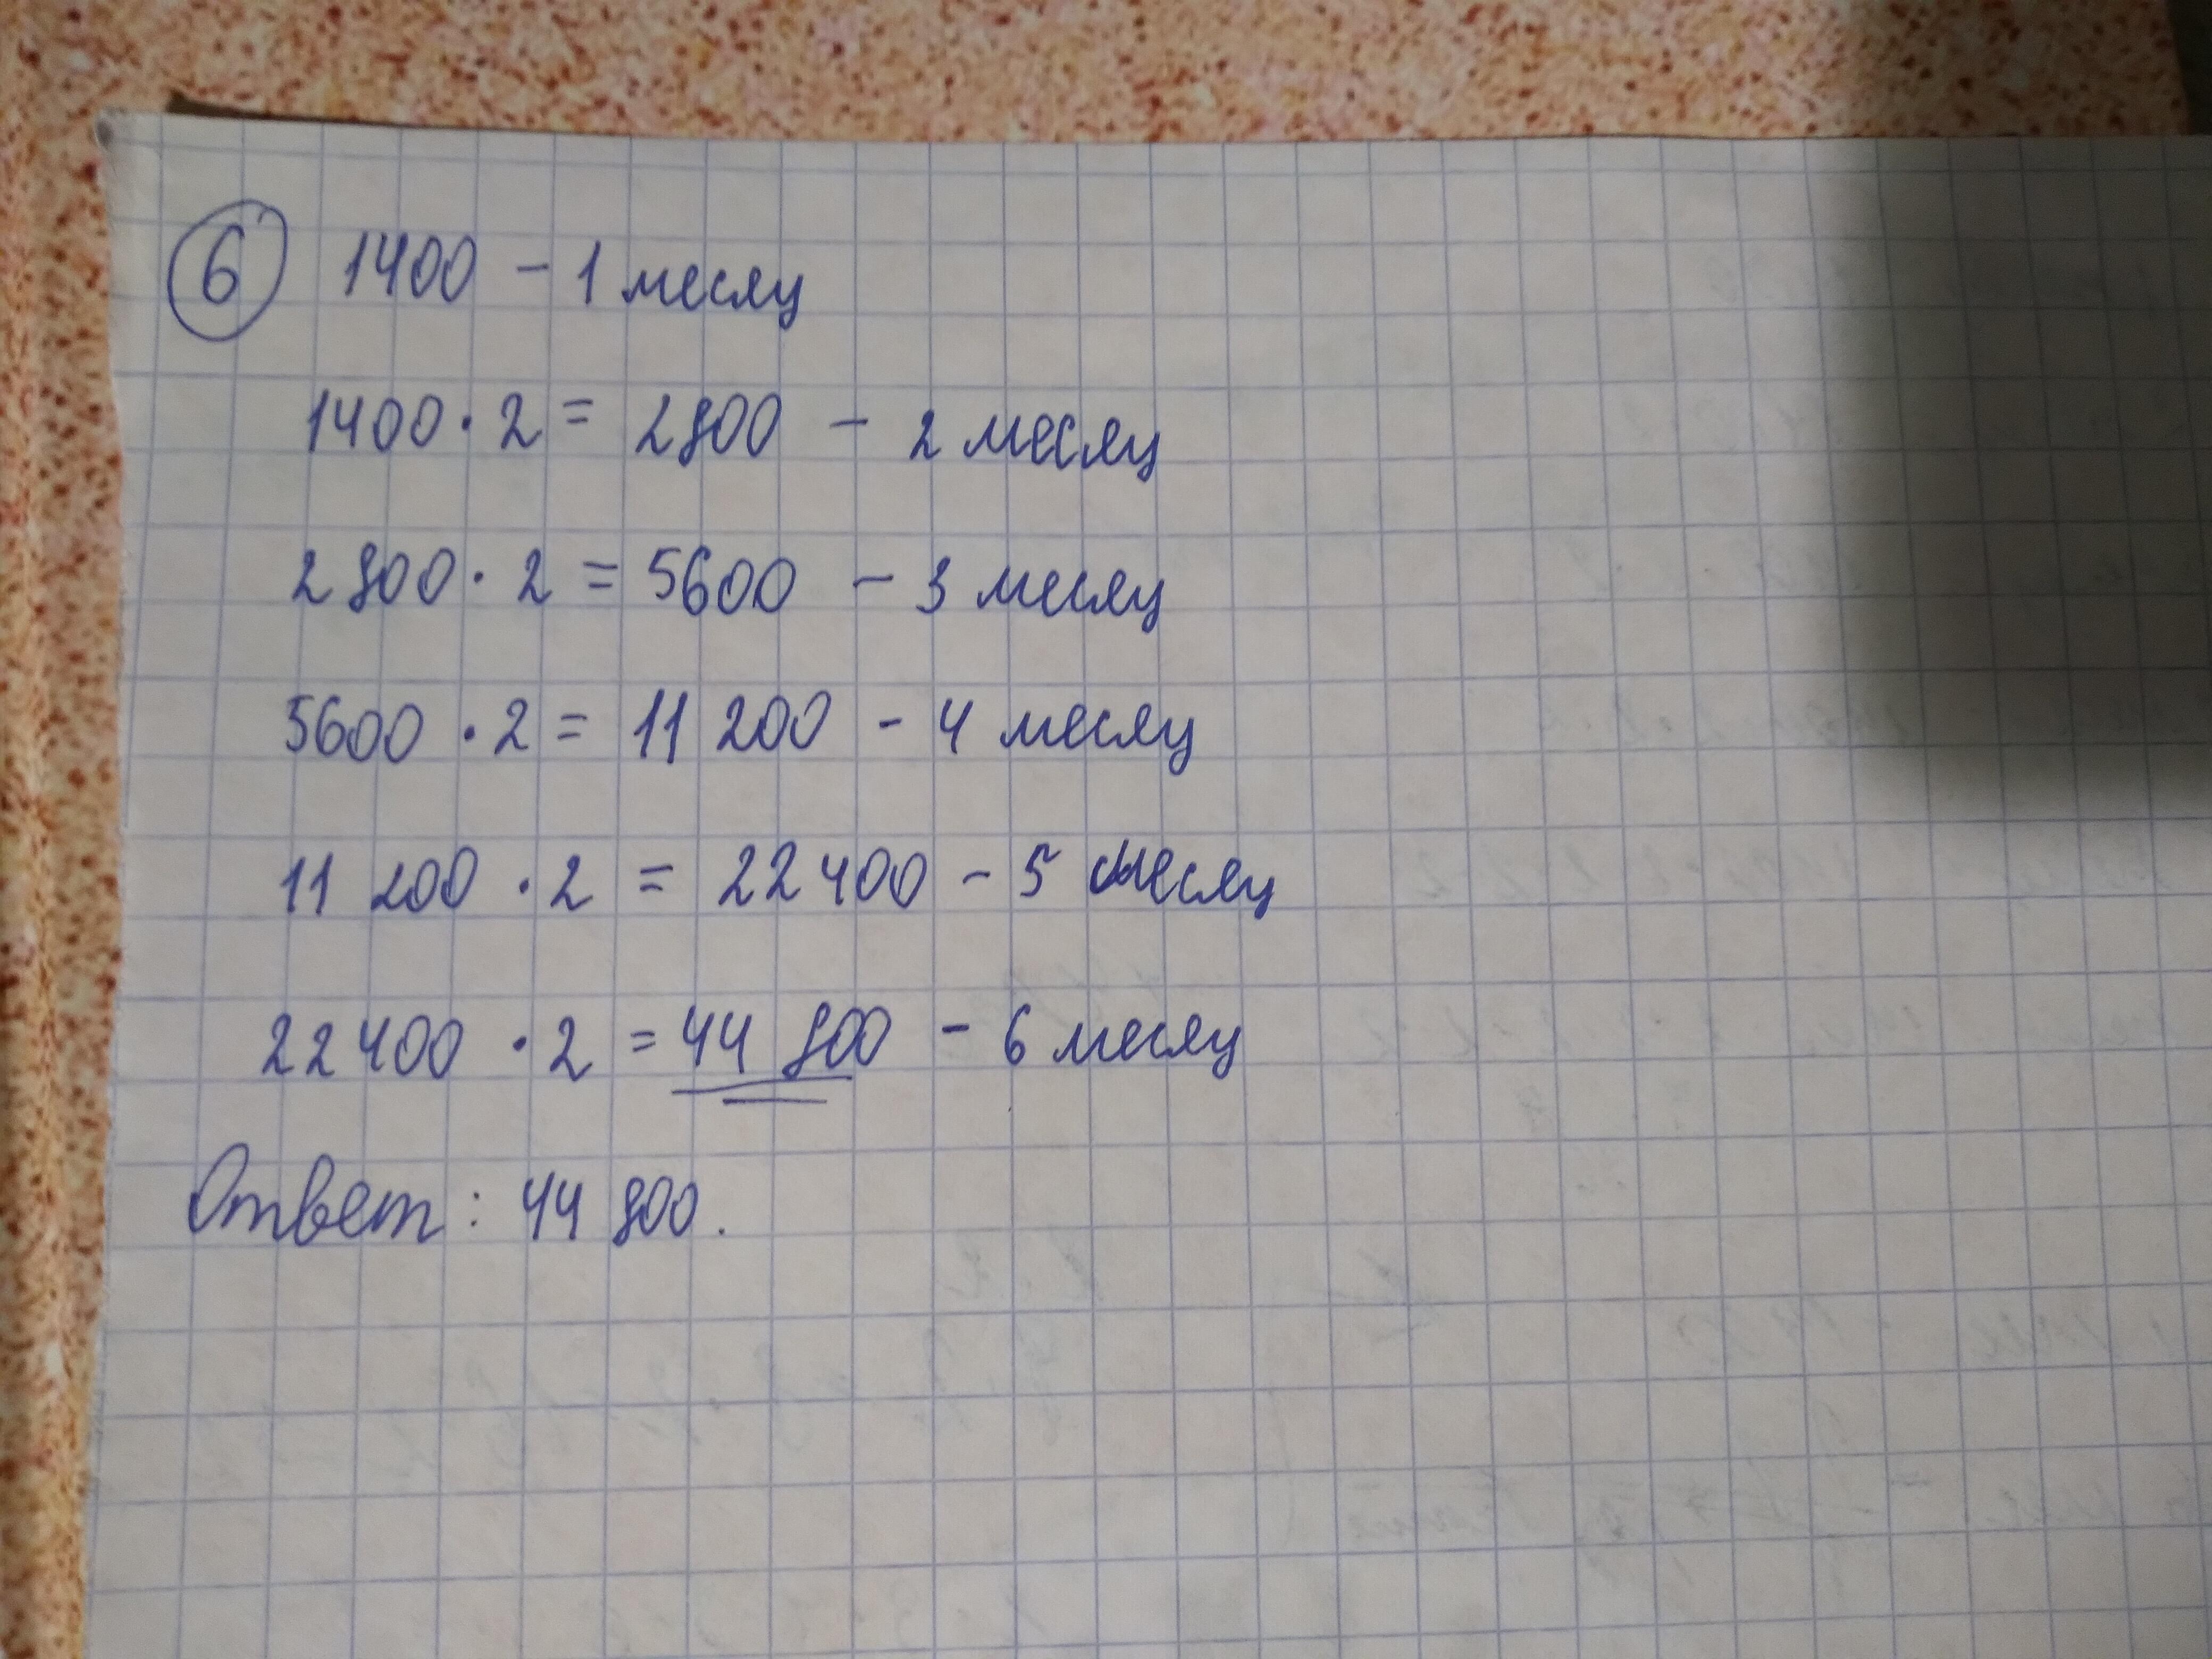 6 1400 - 1 месяц
1400 · 2 = 2800 - 2 месяц
2800 · 2 = 5600 - 3 месяц
5600 · 2 = 11 200 - 4 месяц
11 200 · 2 = 22 400 - 5 месяц
22 400 · 2 = 44 800 - 6 месяц
Ответ: 44 800.